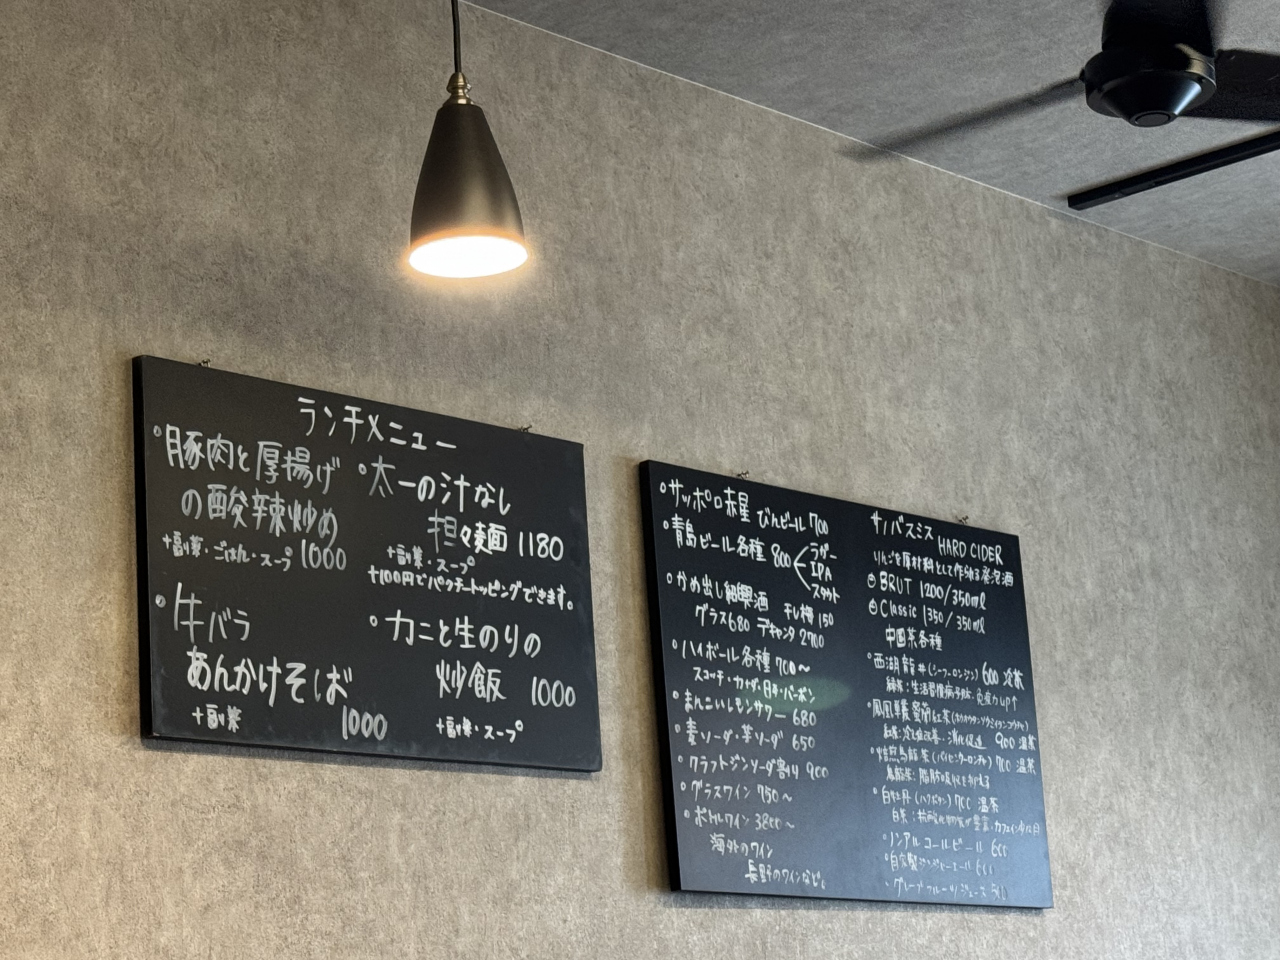 ランチメニュー
豚肉と厚揚げ
の酸辣炒め
+副菜・ごはん・スープ 1000
牛バラ
あんかけそば
+副菜 1000
太一の汁なし
担々麺 1180
+副菜・スープ
+100円でパクチートッピングできます。
カニと生のりの
炒飯 1000
+副菜・スープ
サッポロ赤星 びんビール 700
青島ビール各種 800
ラガー
IPA
スタウト
かめ出し紹興酒 干し梅 150
グラス680 デキャンタ 2700
ハイボール各種 700〜
スコッチ・カナダ・日本・バーボン
まんこいレモンサワー 680
麦ソーダ・芋ソーダ 650
クラフトジンソーダ割り 900
グラスワイン 750〜
ボトルワイン 3800〜
海外のワイン
長野のワインなど。
サノバスミス HARD CIDER
りんごを原材料として作られる発泡酒
BRUT 1200/350ml
Classic 1350/350ml
中国茶各種
西湖龍井(シーフーロンジン) 600 冷茶
緑茶:生活習慣病予防、免疫力up↑
鳳凰単叢蜜蘭紅茶
消化促進 900 温茶
焙煎烏龍茶 700 温茶
烏龍茶:脂肪吸収を抑える
白牡丹 700 温茶
白茶:
ノンアルコールビール 600
自家製ジンジャーエール 600
グレープフルーツジュース